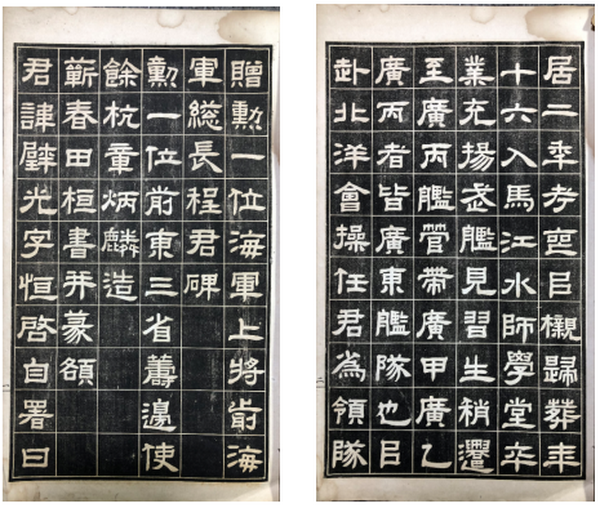 贈勳一位海軍上將前海
軍緫長程君碑
勳一位前東三省籌邊使
餘杭章炳麟造
蘄春田桓書并篆頟
君諱璧光字恒啓自署曰
居二年考喪㠯櫬歸葬年
十六入馬江水師學堂卒
業充揚武艦見習生稍遷
至廣丙艦管帶廣甲廣乙
廣丙者皆廣東艦隊也㠯
赴北洋會操任君為領隊